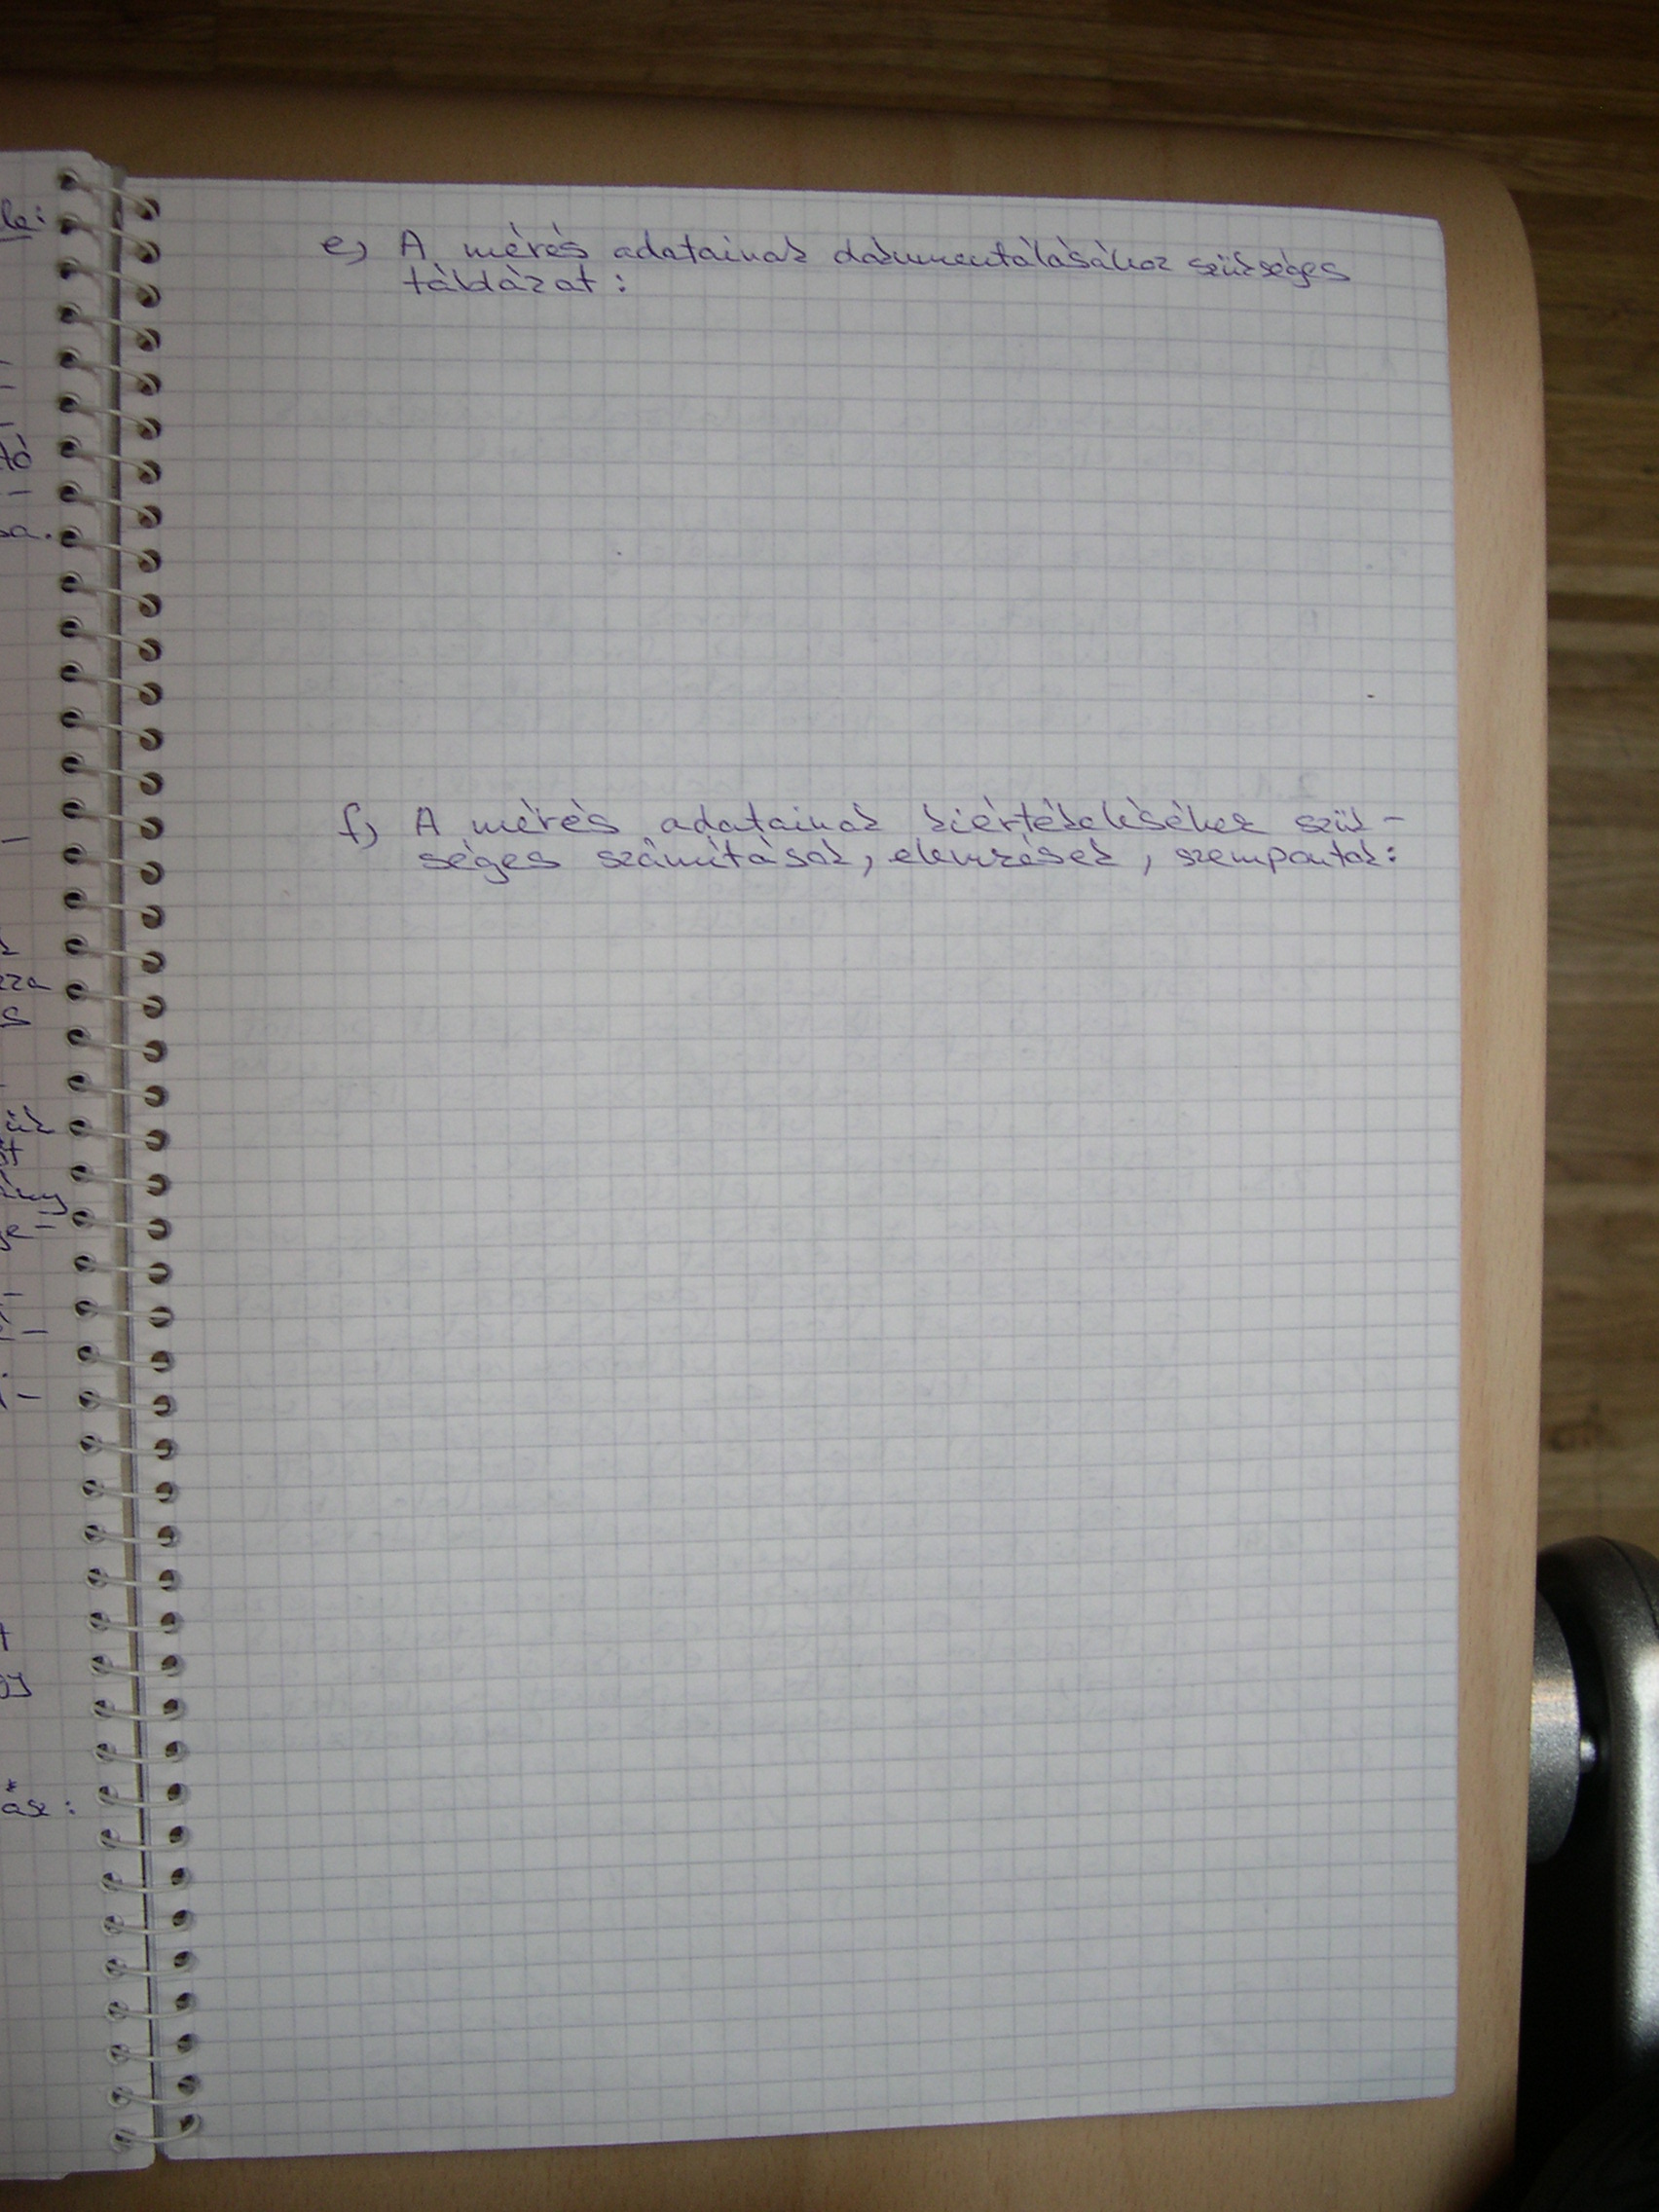 e) A mérés adatainak dokumentálásához szükséges
táblázat:
f) A mérés adatainak kiértékeléséhez szük-
séges számítások, elemzések, szempontok:
le:
tó
sa.
zza
s
ük
ány
ász: